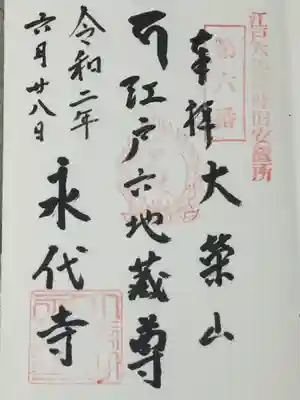 第六番
奉拝 大栄山
江戸六地蔵尊
永代寺
令和二年
六月廿八日